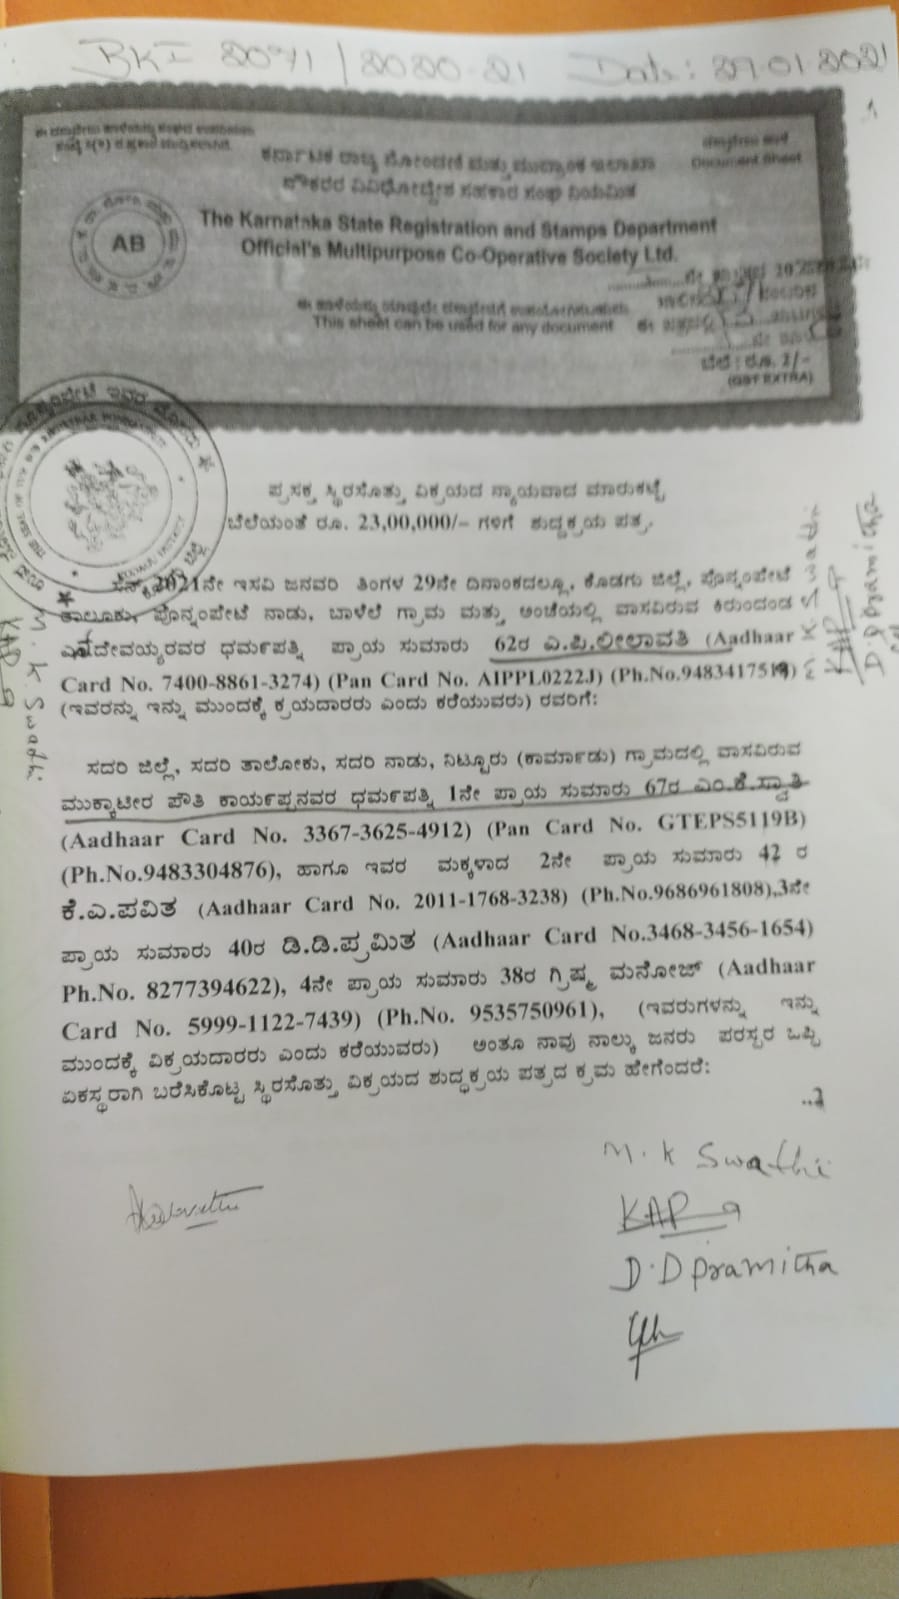 BK I 2071 / 2020-21 Date: 29.01.2021
Document Sheet
AB
The Karnataka State Registration and Stamps Department
Official's Multipurpose Co-Operative Society Ltd.
This sheet can be used for any document
ಬೆಲೆ : ರೂ. 2/-
(GST EXTRA)
ಪ್ರಸಕ್ತ ಸ್ಥಿರಸೊತ್ತು ವಿಕ್ರಯದ ನ್ಯಾಯವಾದ ಮಾರುಕಟ್ಟೆ
ಬೆಲೆಯಂತೆ ರೂ. 23,00,000/- ಗಳಿಗೆ ಶುದ್ಧಕ್ರಯ ಪತ್ರ.
ಸನ್ 2021ನೇ ಇಸವಿ ಜನವರಿ ತಿಂಗಳ 29ನೇ ದಿನಾಂಕದಲ್ಲೂ, ಕೊಡಗು ಜಿಲ್ಲೆ, ಪೊನ್ನಂಪೇಟೆ
ತಾಲೂಕು, ಪೊನ್ನಂಪೇಟೆ ನಾಡು, ಬಾಳೆಲೆ ಗ್ರಾಮ ಮತ್ತು ಅಂಚೆಯಲ್ಲಿ ವಾಸವಿರುವ ಕಿರುಂದಂಡ
ದೇವಯ್ಯರವರ ಧರ್ಮಪತ್ನಿ ಪ್ರಾಯ ಸುಮಾರು 62ರ ಎ.ಪಿ.ಲೀಲಾವತಿ (Aadhaar
Card No. 7400-8861-3274) (Pan Card No. AIPPL0222J) (Ph.No.
(ಇವರನ್ನು ಇನ್ನು ಮುಂದಕ್ಕೆ ಕ್ರಯದಾರರು ಎಂದು ಕರೆಯುವರು) ರವರಿಗೆ:
ಸದರಿ ಜಿಲ್ಲೆ, ಸದರಿ ತಾಲೋಕು, ಸದರಿ ನಾಡು, ನಿಟ್ಟೂರು (ಕಾರ್ಮಾಡು) ಗ್ರಾಮದಲ್ಲಿ ವಾಸವಿರುವ
ಮುಕ್ಕಾಟೀರ ಪೌತಿ ಕಾರ್ಯಪ್ಪನವರ ಧರ್ಮಪತ್ನಿ 1ನೇ ಪ್ರಾಯ ಸುಮಾರು 67ರ ಎಂ.ಕೆ.ಸ್ವಾತಿ
(Aadhaar Card No. 3367-3625-4912) (Pan Card No. GTEPS5119B)
(Ph.No.9483304876), ಹಾಗೂ ಇವರ ಮಕ್ಕಳಾದ 2ನೇ ಪ್ರಾಯ ಸುಮಾರು 42 ರ
ಕೆ.ಎ.ಪವಿತ (Aadhaar Card No. 2011-1768-3238) (Ph.No.9686961808),3ನೇ
ಪ್ರಾಯ ಸುಮಾರು 40ರ ಡಿ.ಡಿ.ಪ್ರಮಿತ (Aadhaar Card No.3468-3456-1654)
Ph.No. 8277394622), 4ನೇ ಪ್ರಾಯ ಸುಮಾರು 38ರ ಗ್ರಿಷ್ಮ ಮನೋಜ್ (Aadhaar
Card No. 5999-1122-7439) (Ph.No. 9535750961), (ಇವರುಗಳನ್ನು ಇನ್ನು
ಮುಂದಕ್ಕೆ ವಿಕ್ರಯದಾರರು ಎಂದು ಕರೆಯುವರು) ಅಂತೂ ನಾವು ನಾಲ್ಕು ಜನರು ಪರಸ್ಪರ ಒಪ್ಪಿ
ಏಕಸ್ಥರಾಗಿ ಬರೆಸಿಕೊಟ್ಟ ಸ್ಥಿರಸೊತ್ತು ವಿಕ್ರಯದ ಶುದ್ಧಕ್ರಯ ಪತ್ರದ ಕ್ರಮ ಹೇಗೆಂದರೆ:
..2
M. K Swathi
KAP
D. D Pramitha
M. K Swathi
D. D Pramitha